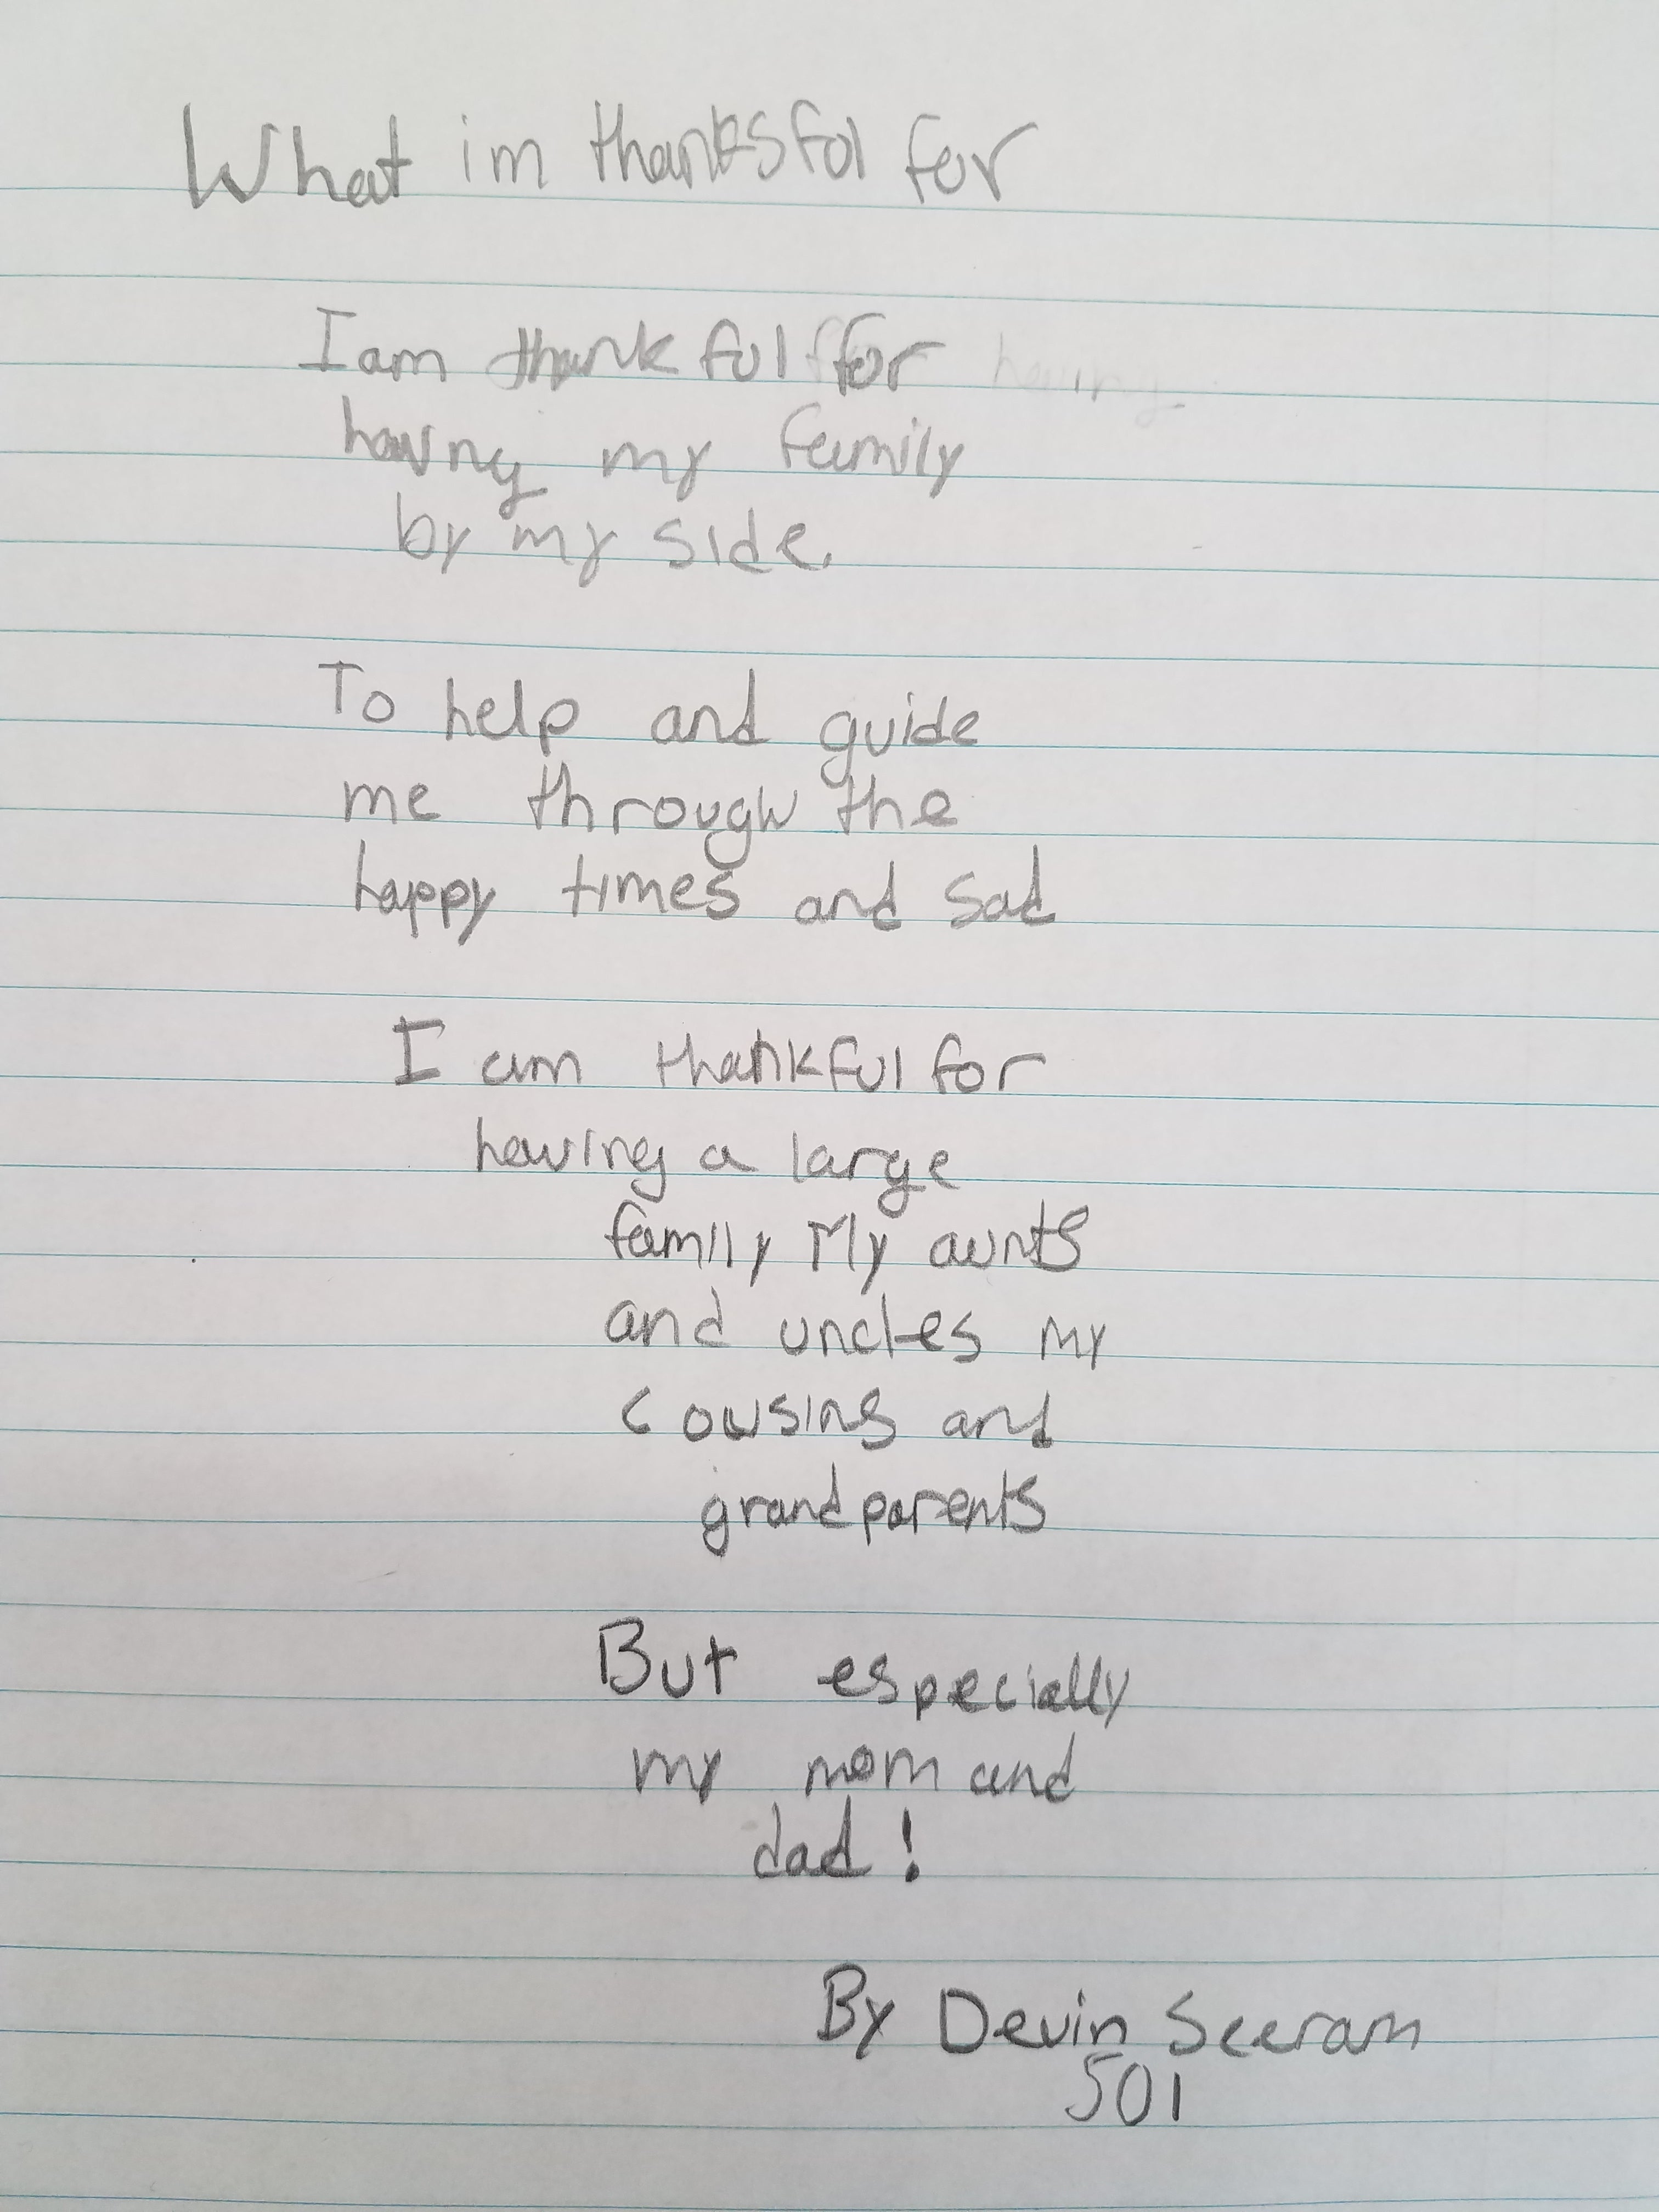 What im thanksful for
I am thankful for
having my family
by my side.
To help and guide
me through the
happy times and sad
I am thankful for
having a large
family My aunts
and uncles my
cousins and
grandparents
But especially
my mom and
dad!
By Devin Seeram
501